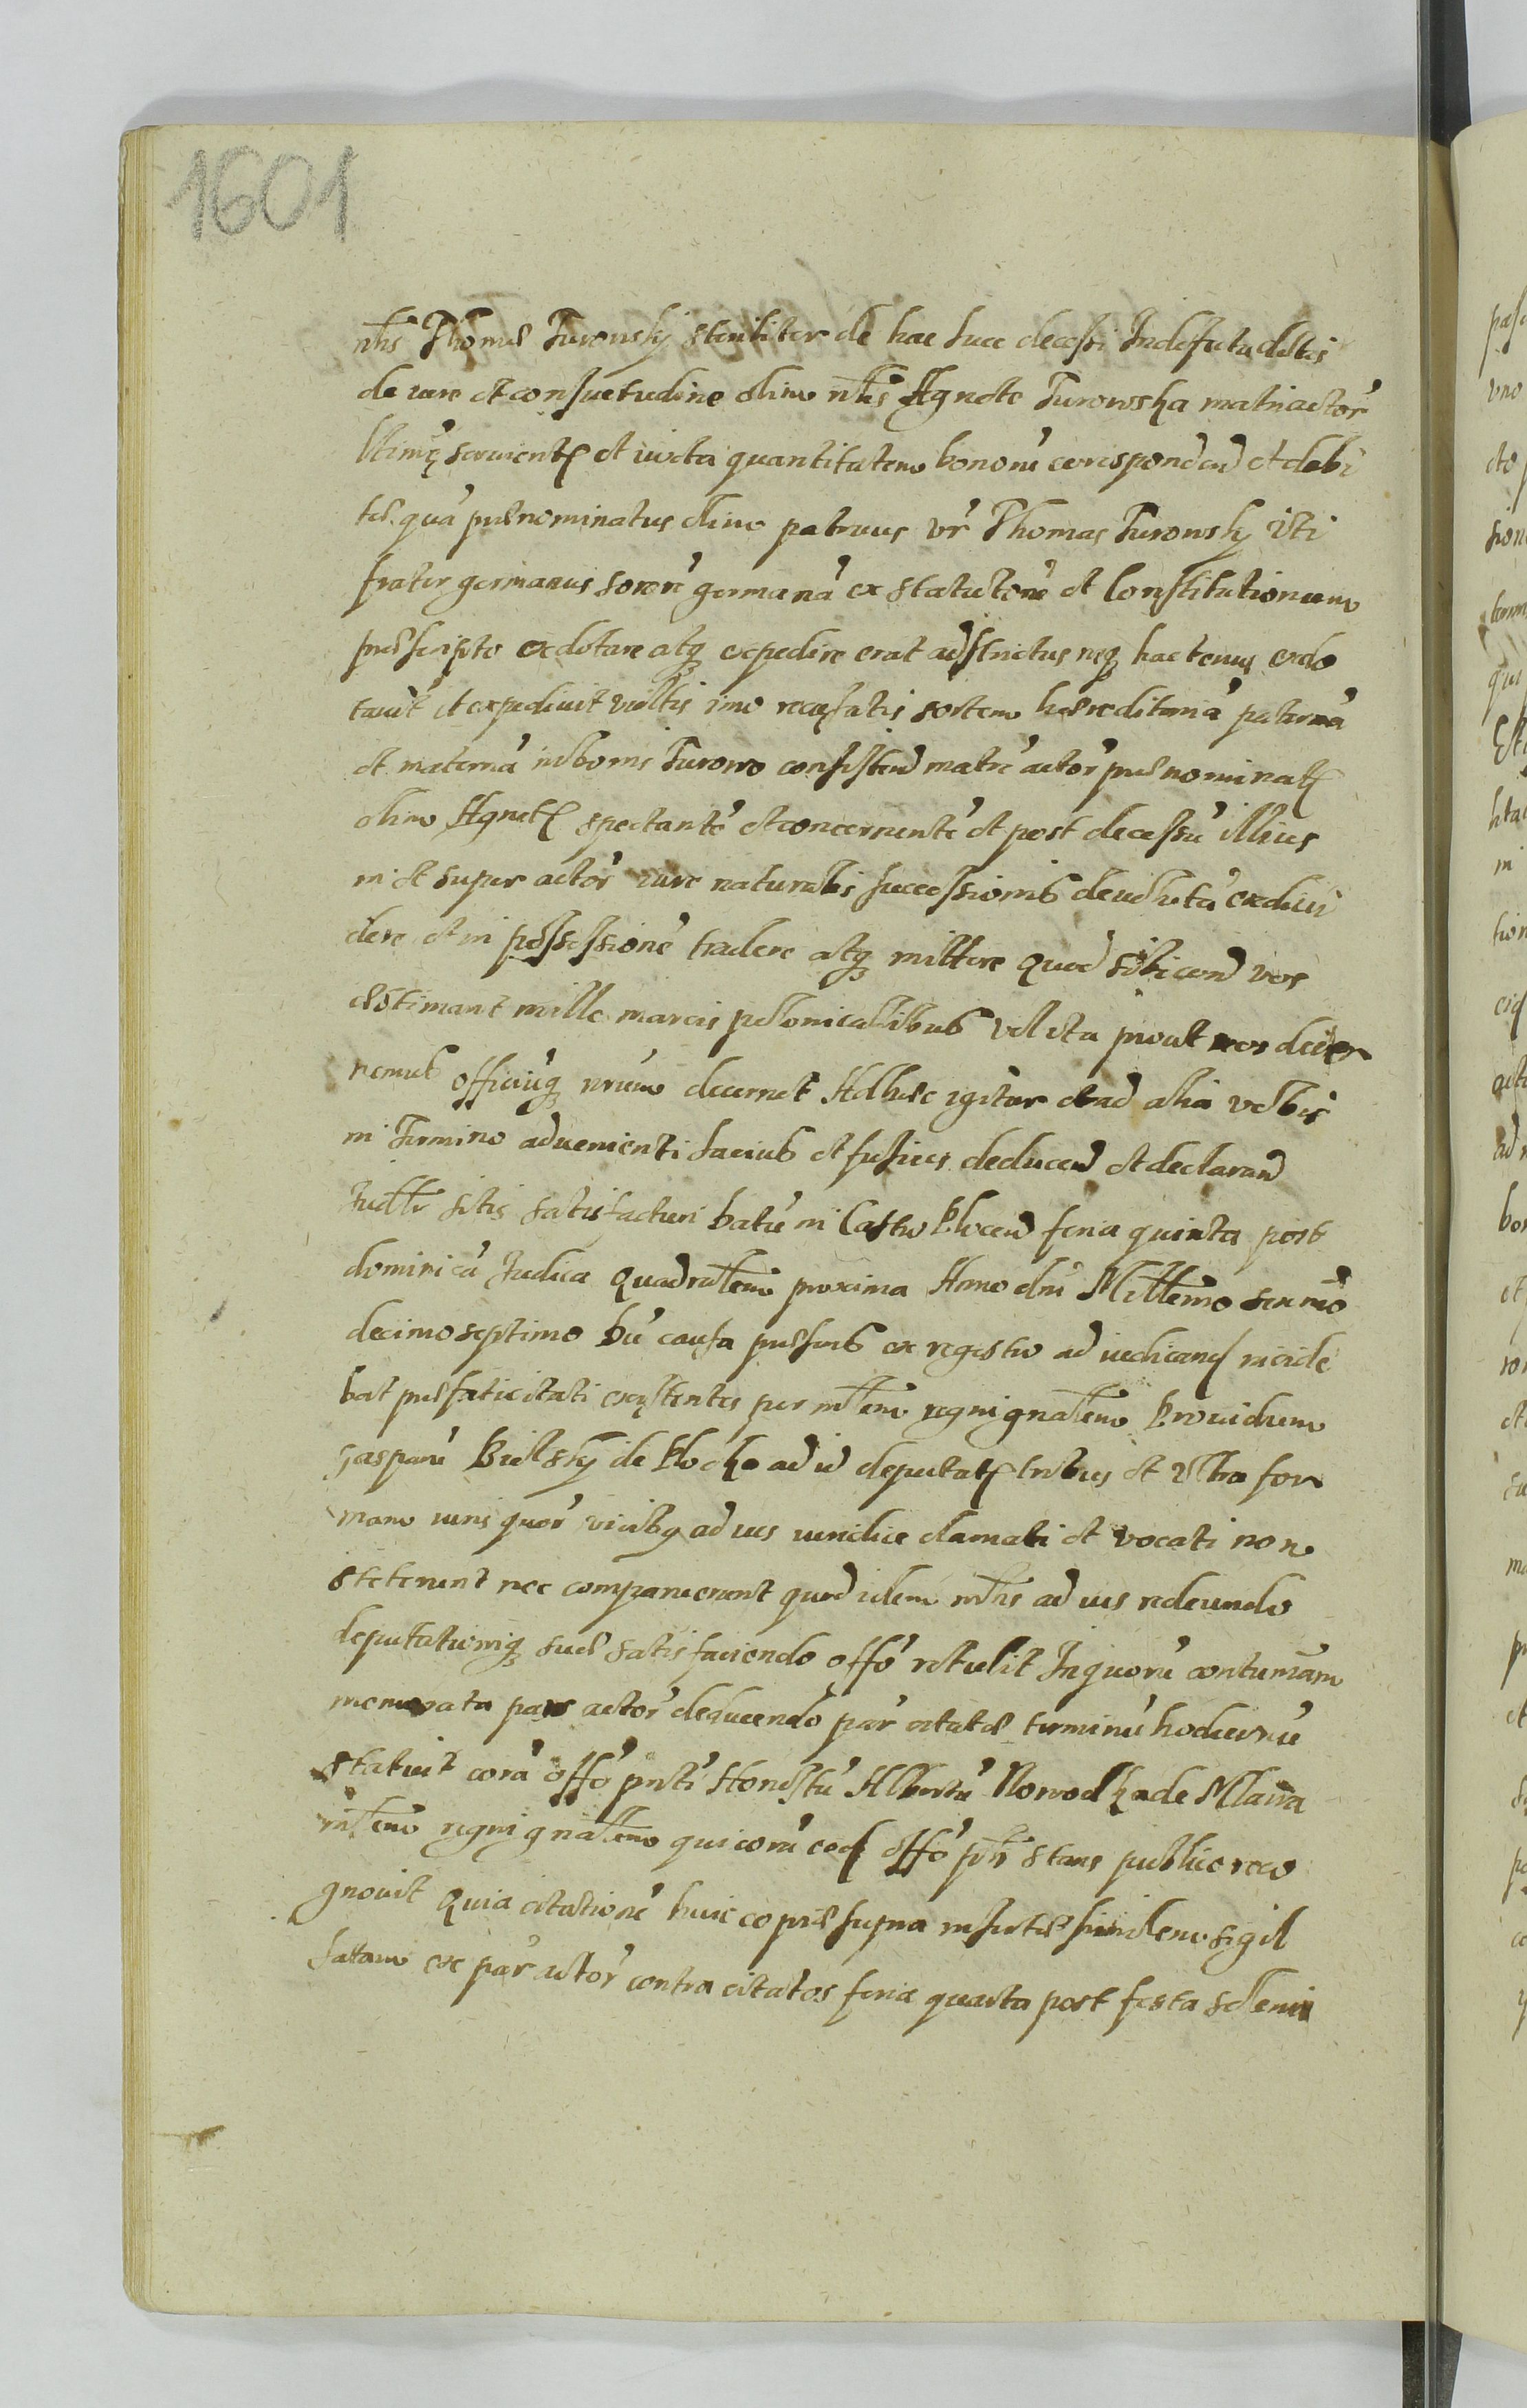 1601
nlis Thomae Turowsky steriliter de hac luce decessi Inde futu dotis
de iure et consuetudine olim nlis Agnete Turowska matri actor
ltimę seruient et iuxta quantitatem bonorū corespondend et debi
tae quā praenominatus olim patruus vr Thomas Turowsky vti
frater germanus sororē germanā ex statutorū et Constitutionum
praescripto exdotare atq expedire erat adstrictus neq hactenus exdo
tauit et expediuit vultis imo recusatis sortem haereditariā paternā
et maternā in bonis Turowo consistend matrē actor praenominat
olim Agnet spectantē et concernentē et post decessū illius
in et super actor iure naturalis successionis deuolutā exdiui
dere et in possessionē tradere atq mittere Quod sibi cond vos
aestimant mille marcis polonicalibus vel ita prout vos decer
nemus officiūq nrum decernet Ad haec igitur et ad alia vobis
in Termino aduenienti lacius et fusius deducend et declarand
Iudlr sitis satisfacturi Datū in Castro Plocen feria quinta post
dominicā Iudica Quadralem proxima Anno dni Millemo sexmo
decimoseptimo Dū causa praesens ex registro ad iudicand incide
bat praefati citati existentes per mlem regni gnalem Prouidum
Gasparū Bielsky de Plocko ad id deputat tribus et vltra for
mam iuris quor vicibus ad ius iuridice clamati et vocati non
steterunt nec comparuerunt quod idem mlis ad ius redeundo
deputationiq suae satisfaciendo offo retulit In quorū contumam
memorata pars actor deducendo par citatae terminū hodiernū
statuit corā offo pnti Honestū Albertū Nowodka de Mlawa
mlem regni gnalem qui corā eod offo pnr stans publice reco
gnouit Quia citationē huic copiae supra insertae similem sigil
latam ex par actor contra citatos feria quarta post festa solenni